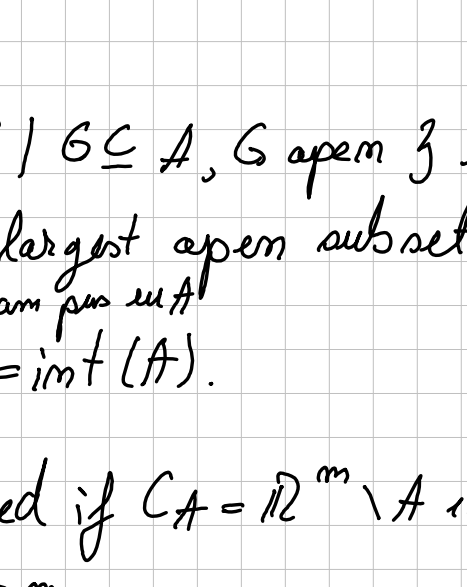 | G ⊆ A, G open }.
largest open subset
am pus eu A
= int (A).
ed if C_A = ℝ^m \ A